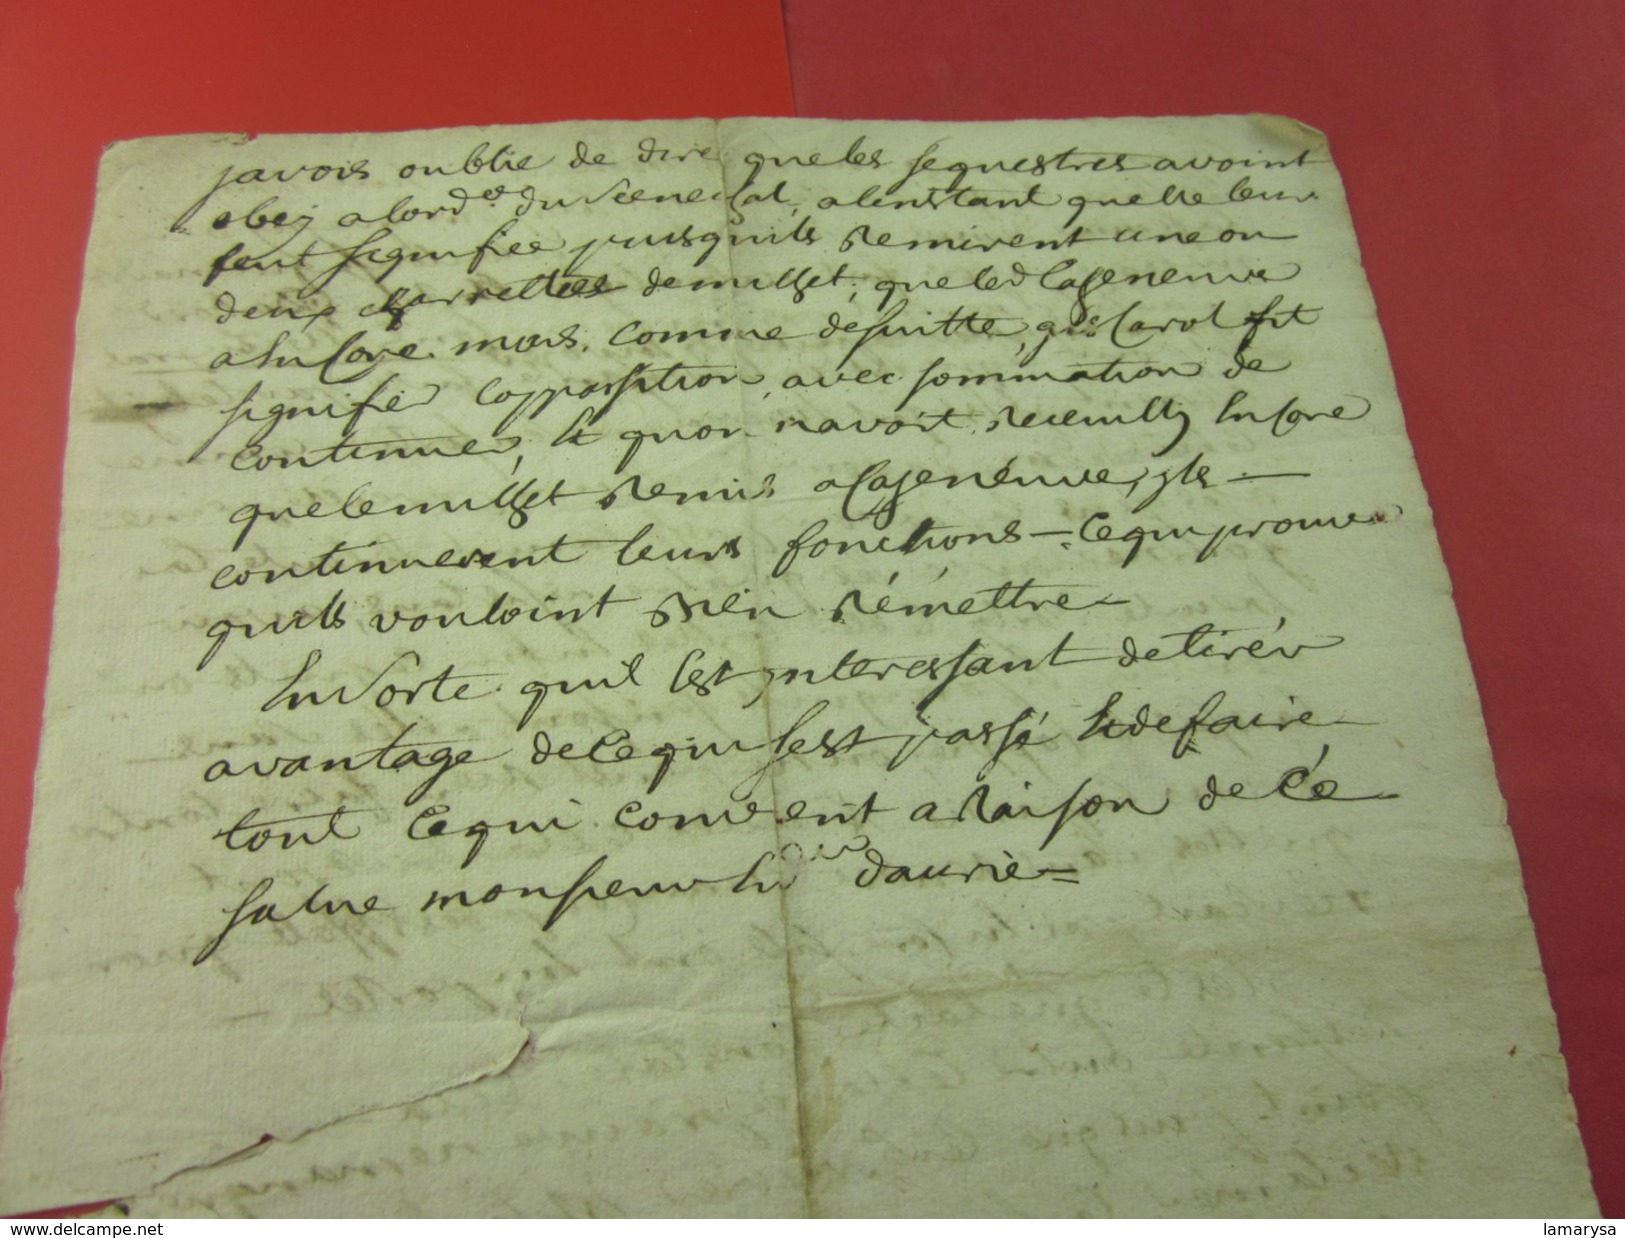 javois oublie de dire que les sequestres avoint
obey a lord.ce du seneschal, a linstant quelle leur
feut signifiee puisquils remirent une ou
deux charrettes de millet, que led Caseneuve
encore mais, comme de suitte, qe Carol fit
signifier lopposition, avec sommation de
continuer, et quon navoit receuilly encore
que le millet remis a Caseneuve, ils
continuerent leurs fonctions =, ce qui prouve
quils vouloint rien rémettre
En sorte quil est interessant de tirér
avantage de ce qui sest passé et de faire
tout ce qui convient a raison de cé
salue monsieur daurié =
delcampe.net
lamarysa